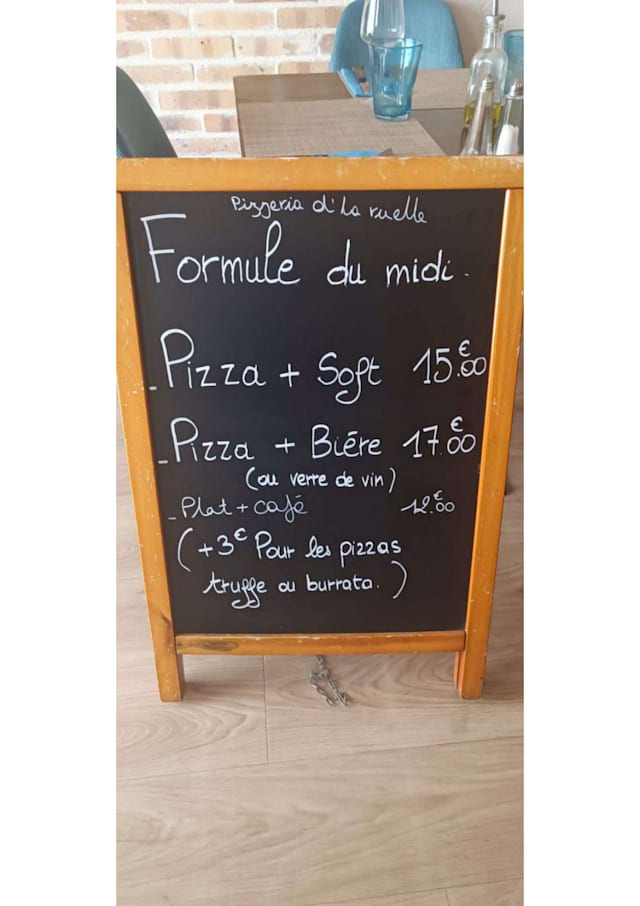 Pizzeria d' La ruelle
Formule du midi.
- Pizza + Soft 15.€00
- Pizza + Biére 17.€00
(ou verre de vin)
- Plat + café 12.€00
(+3€ Pour les pizzas
truffe ou burrata.)